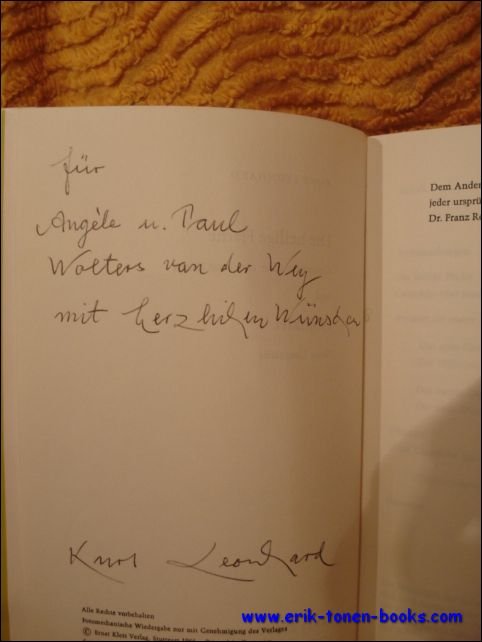 für
Angèle u. Paul
Wolters van der Wey
mit herzlichen Wünschen
Kurt Leonhard
Alle Rechte vorbehalten
Fotomechanische Wiedergabe nur mit Genehmigung des Verlages
© Ernst Klett Verlag, Stuttgart
Dem Ander
jeder ursprü
Dr. Franz Ro
www.erik-tonen-books.com